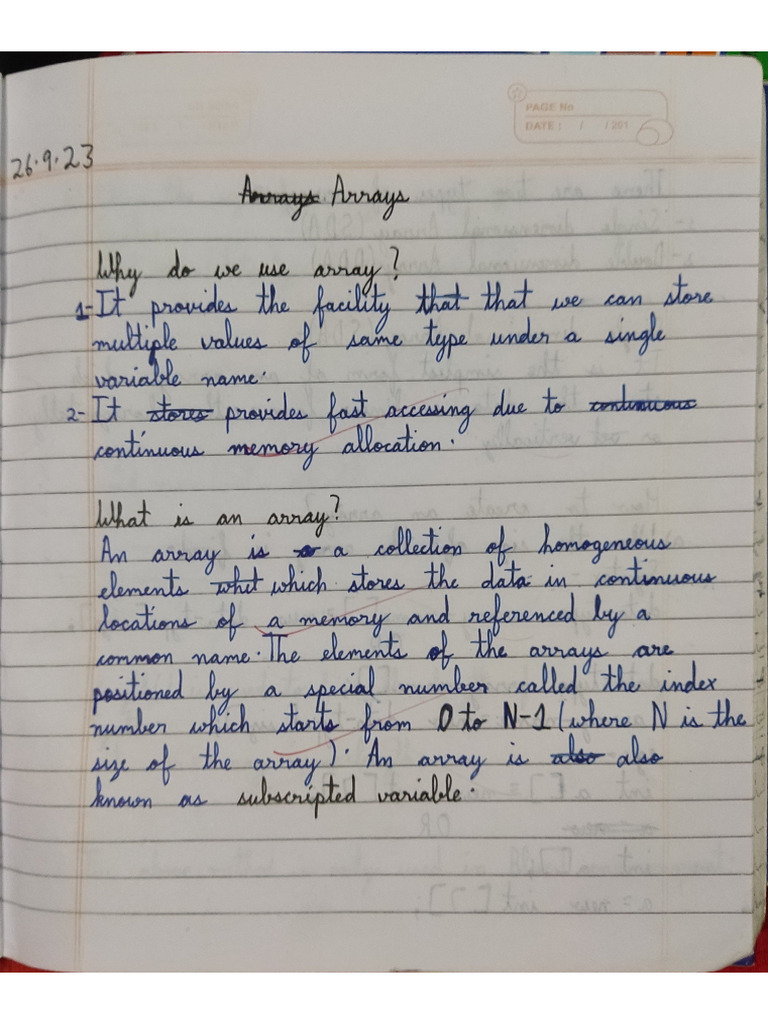 PAGE No
DATE: / / 201
26.9.23
Arrays Arrays
Why do we use array?
1- It provides the facility that that we can store
multiple values of same type under a single
variable name.
2- It stores provides fast accessing due to continuous
continuous memory allocation.
What is an array?
An array is a a collection of homogeneous
elements whet which stores the data in continuous
locations of a memory and referenced by a
common name. The elements of the arrays are
positioned by a special number called the index
number which starts from 0 to N-1 (where N is the
size of the array). An array is also also
known as subscripted variable.